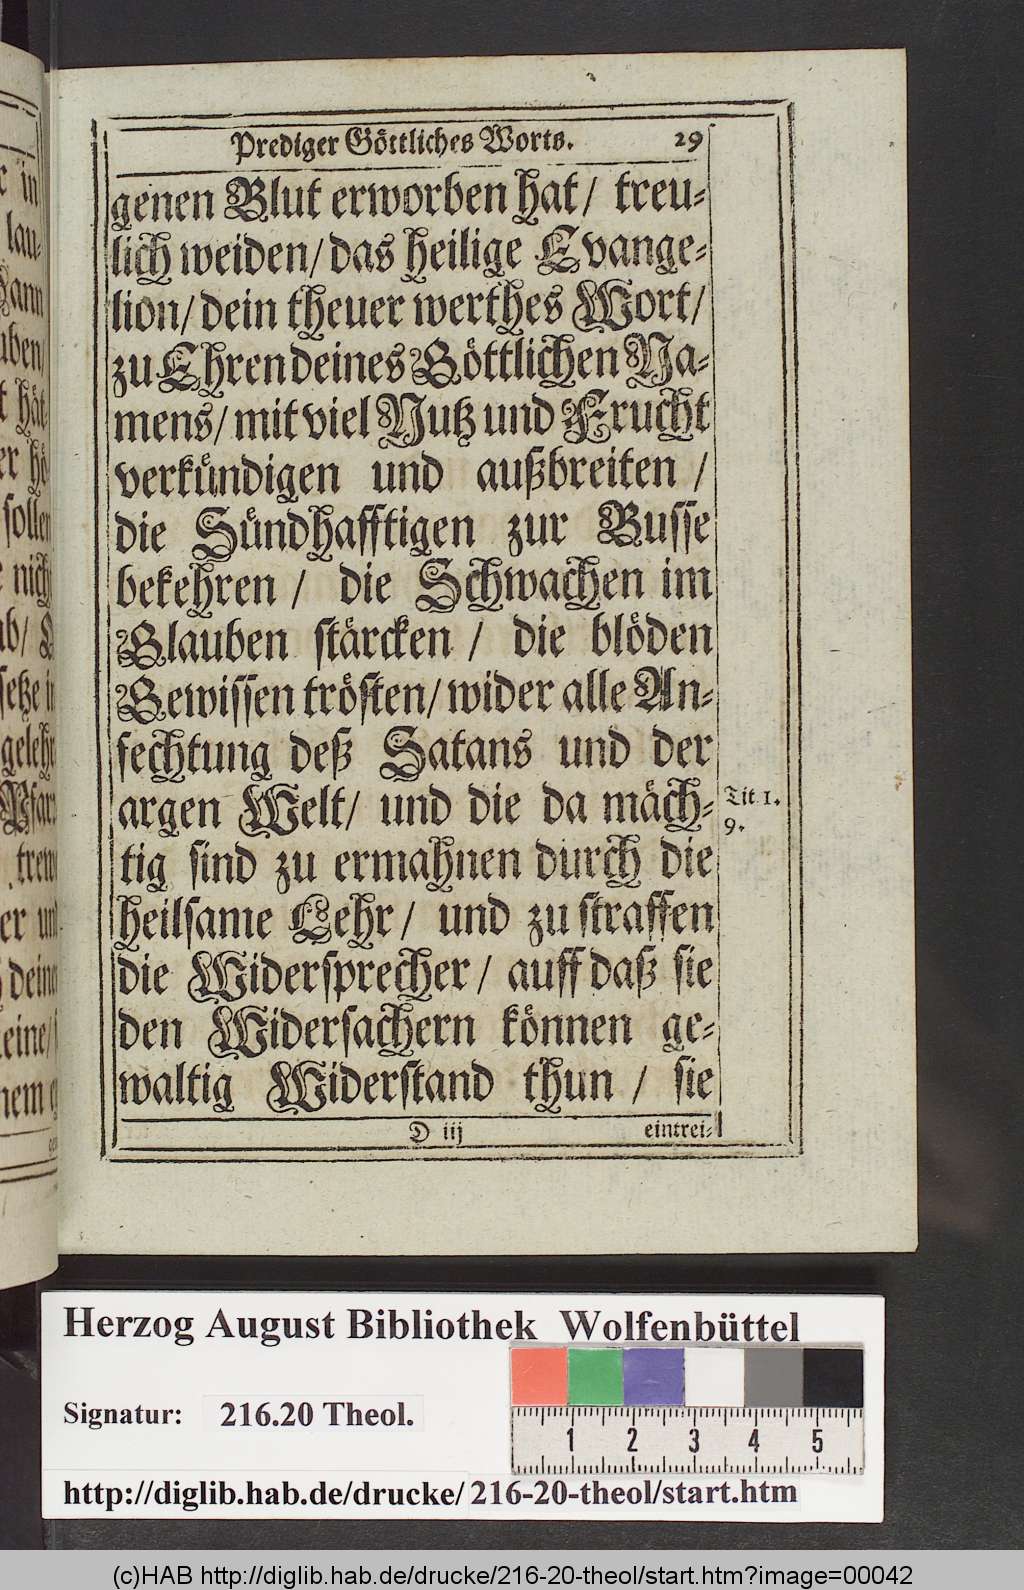 Prediger Göttliches Worts. 29
genen Blut erworben hat/ treu-
lich weiden/ das heilige Evange-
lion/ dein theuer werthes Wort/
zu Ehren deines Göttlichen Na-
mens/ mit viel Nutz und Frucht
verkündigen und außbreiten /
die Sündhafftigen zur Busse
bekehren / die Schwachen im
Glauben stärcken / die blöden
Gewissen trösten/ wider alle An-
fechtung deß Satans und der
argen Welt/ und die da mäch-
tig sind zu ermahnen durch die
heilsame Lehr/ und zu straffen
die Widersprecher/ auff daß sie
den Widersachern können ge-
waltig Widerstand thun / sie
D iij eintrei-
Tit 1.
9.
in
lau-
ben/
hät
sollen
setze
gelehr
Pfar
Herzog August Bibliothek Wolfenbüttel
Signatur: 216.20 Theol.
1 2 3 4 5
http://diglib.hab.de/drucke/216-20-theol/start.htm
(c)HAB http://diglib.hab.de/drucke/216-20-theol/start.htm?image=00042